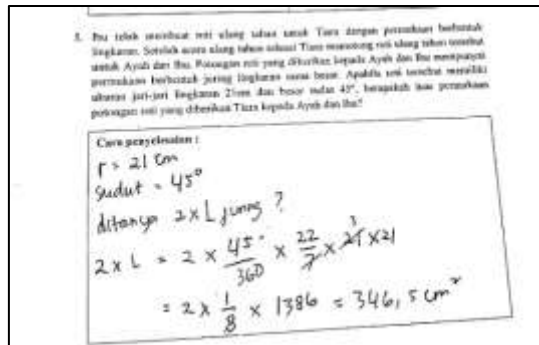 5. Ibu telah membuat roti ulang tahun untuk Tiara dengan permukaan berbentuk
lingkaran. Setelah acara ulang tahun selesai Tiara memotong roti ulang tahun tersebut
untuk Ayah dan Ibu. Potongan roti yang diberikan kepada Ayah dan Ibu mempunyai
permukaan berbentuk juring lingkaran sama besar. Apabila roti tersebut memiliki
ukuran jari-jari lingkaran 21cm dan besar sudut 45°, berapakah luas permukaan
potongan roti yang diberikan Tiara kepada Ayah dan Ibu?
Cara penyelesaian :
r = 21 cm
Sudut = 45°
ditanya 2 x L juring ?
2 x L = 2 x 45°/360 x 22/7 x 21 x 21
3
= 2 x 1/8 x 1386 = 346,5 cm²